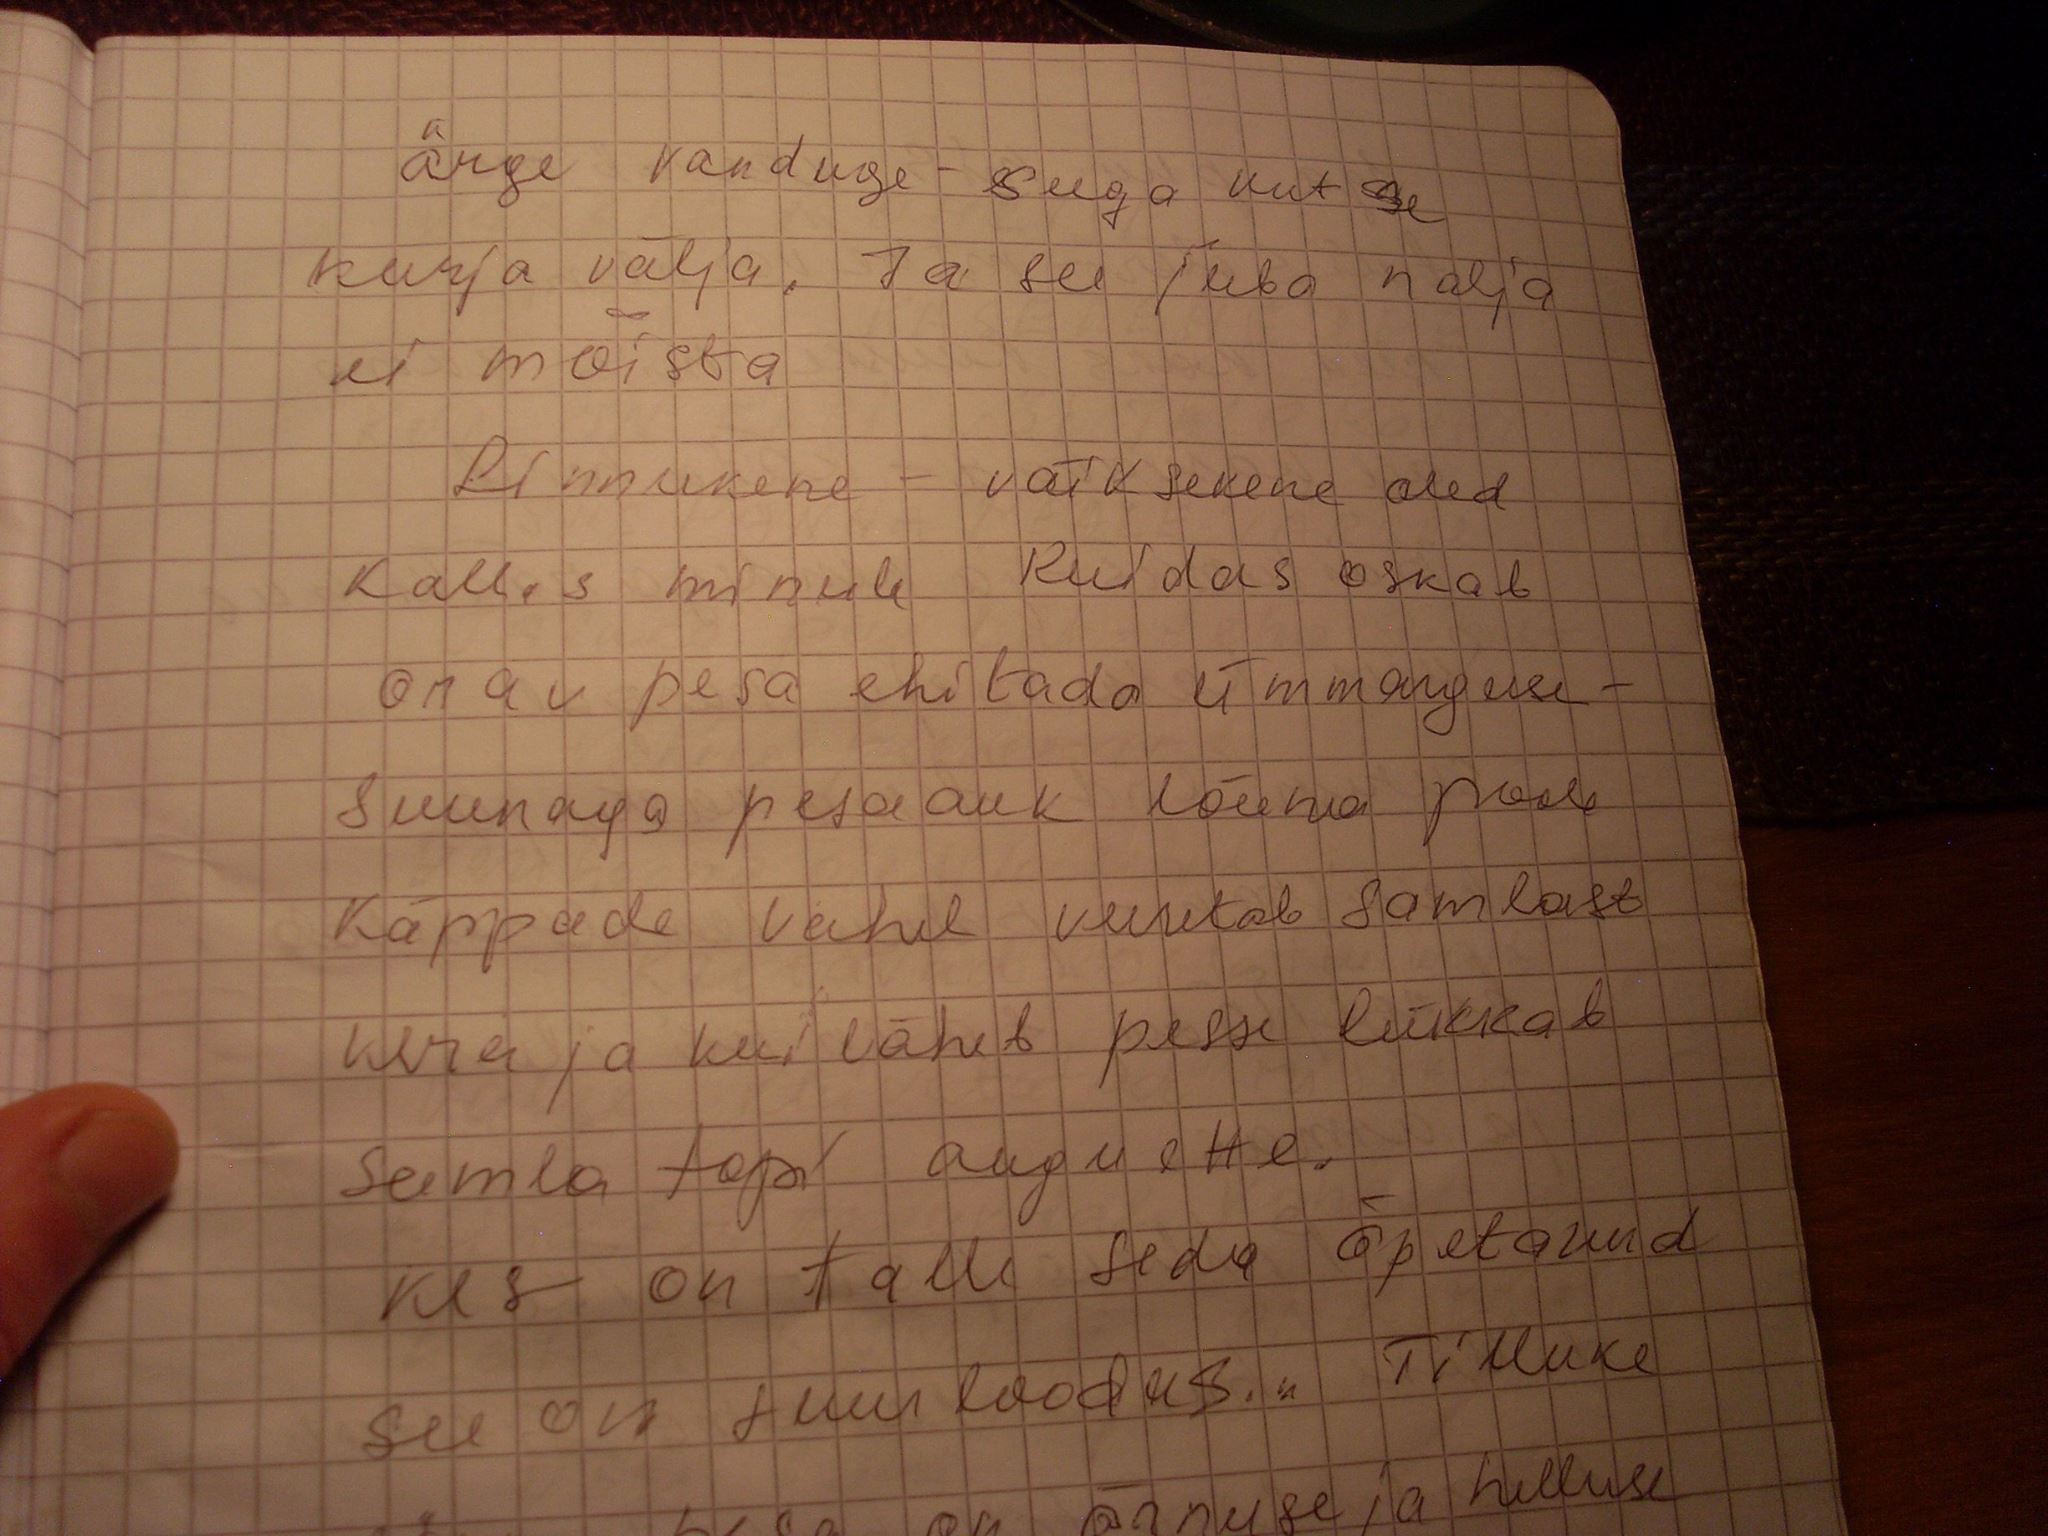 "ärge vanduge - suga kutse
kurja välja. Ta see juba nalja
ei mõista
Linnukene - väiksekene oled
Kallis minule Kuidas oskab
onav pesa ehitada ümmarguse -
Suunaga pesaauk lõuna poole
Käppade vahel veeretab samlast
kera ja kui läheb pesse lükkab
Samla topi augu ette.
Kes on talle seda õpetanud
see on suur loodus." Tilluke
pesa on õrnuse ja helluse